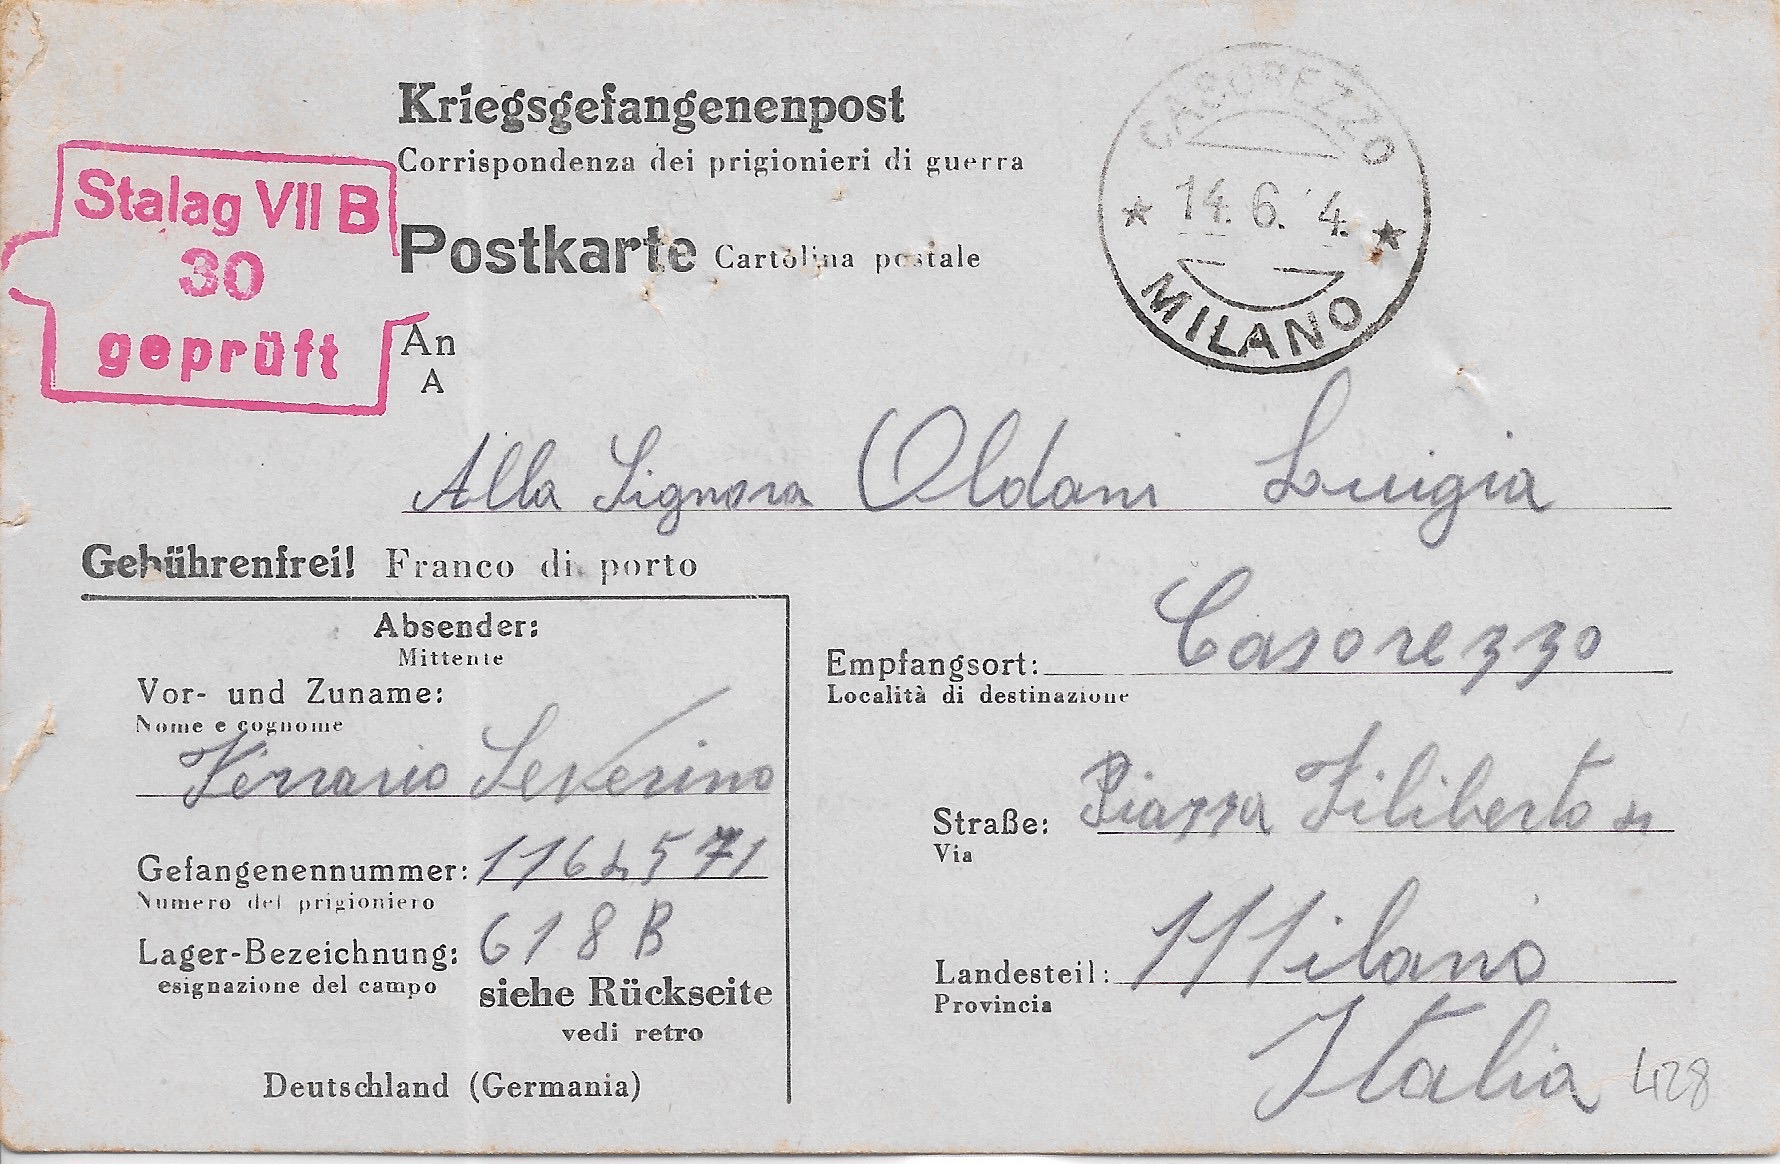 Kriegsgefangenenpost
Corrispondenza dei prigionieri di guerra
CASOREZZO
14. 6. 4.
MILANO
Stalag VII B
30
geprüft
Postkarte Cartolina postale
An
A
Alla Signora Oldani Luigia
Gebührenfrei! Franco di porto
Absender:
Mittente
Vor- und Zuname:
Nome e cognome
Ferrario Severino
Gefangenennummer:
Numero del prigioniero
Lager-Bezeichnung: 618 B
esignazione del campo
siehe Rückseite
vedi retro
Deutschland (Germania)
Empfangsort: Casorezzo
Località di destinazione
Straße: Piazza Filiberto
Via
Landesteil: Milano
Provincia
Italia
428